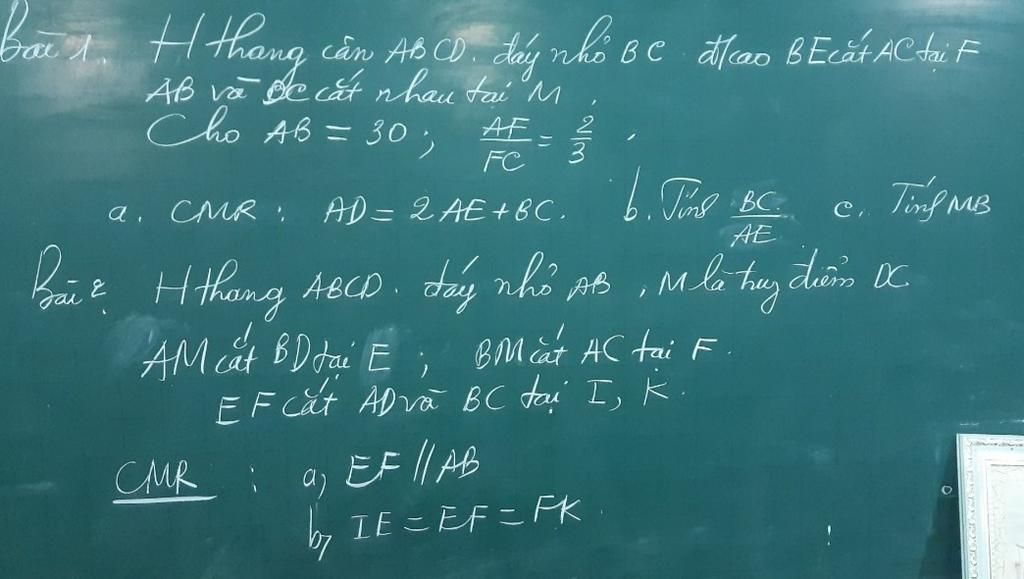 Bài 1. H thang cân ABCD. đáy nhỏ BC đ/cao BE cắt AC tại F
AB và DC cắt nhau tại M,
Cho AB = 30; AF/FC = 2/3.
a. CMR: AD = 2AE + BC. b. Tính BC/AE c. Tính MB
Bài 2. H thang ABCD. đáy nhỏ AB, M là truy điểm DC
AM cắt BD tại E; BM cắt AC tại F.
EF cắt AD và BC tại I, K.
CMR: a, EF // AB
b, IE = EF = FK.